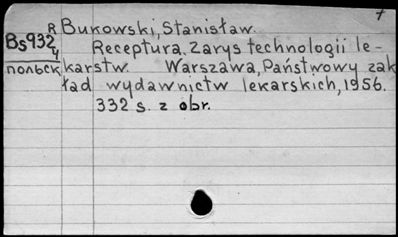 R Bukowski, Stanisław.
Bs932
4 Receptura. Zarys technologii le-
польск karstw. Warszawa, Państwowy zak
ład wydawnictw lekarskich, 1956.
332 s. z obr.